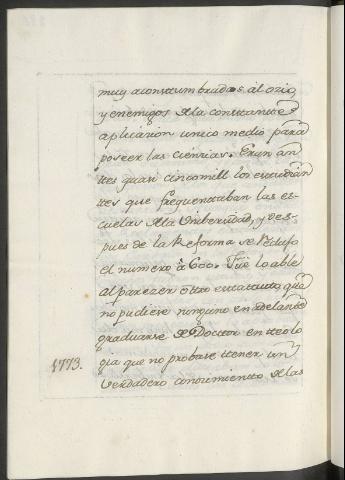 muy aconsttumbrados al ozio
y enemigos de la consttantte
aplicazion unico medio para
poseer las ciencias. Eran an
ttes quasi cinco mill los esttudian
ttes que frequenttaban las es-
cuelas de la Unibersidad, y des-
pues de la Reforma se redujo
el numero à 600. Fue loable
al parezer ottro esttattuto, que
no pudiese ninguno en adelantte
graduarse de Docttor en tteolo
gia que no probase ttener un
1773. verdadero conozimientto de las